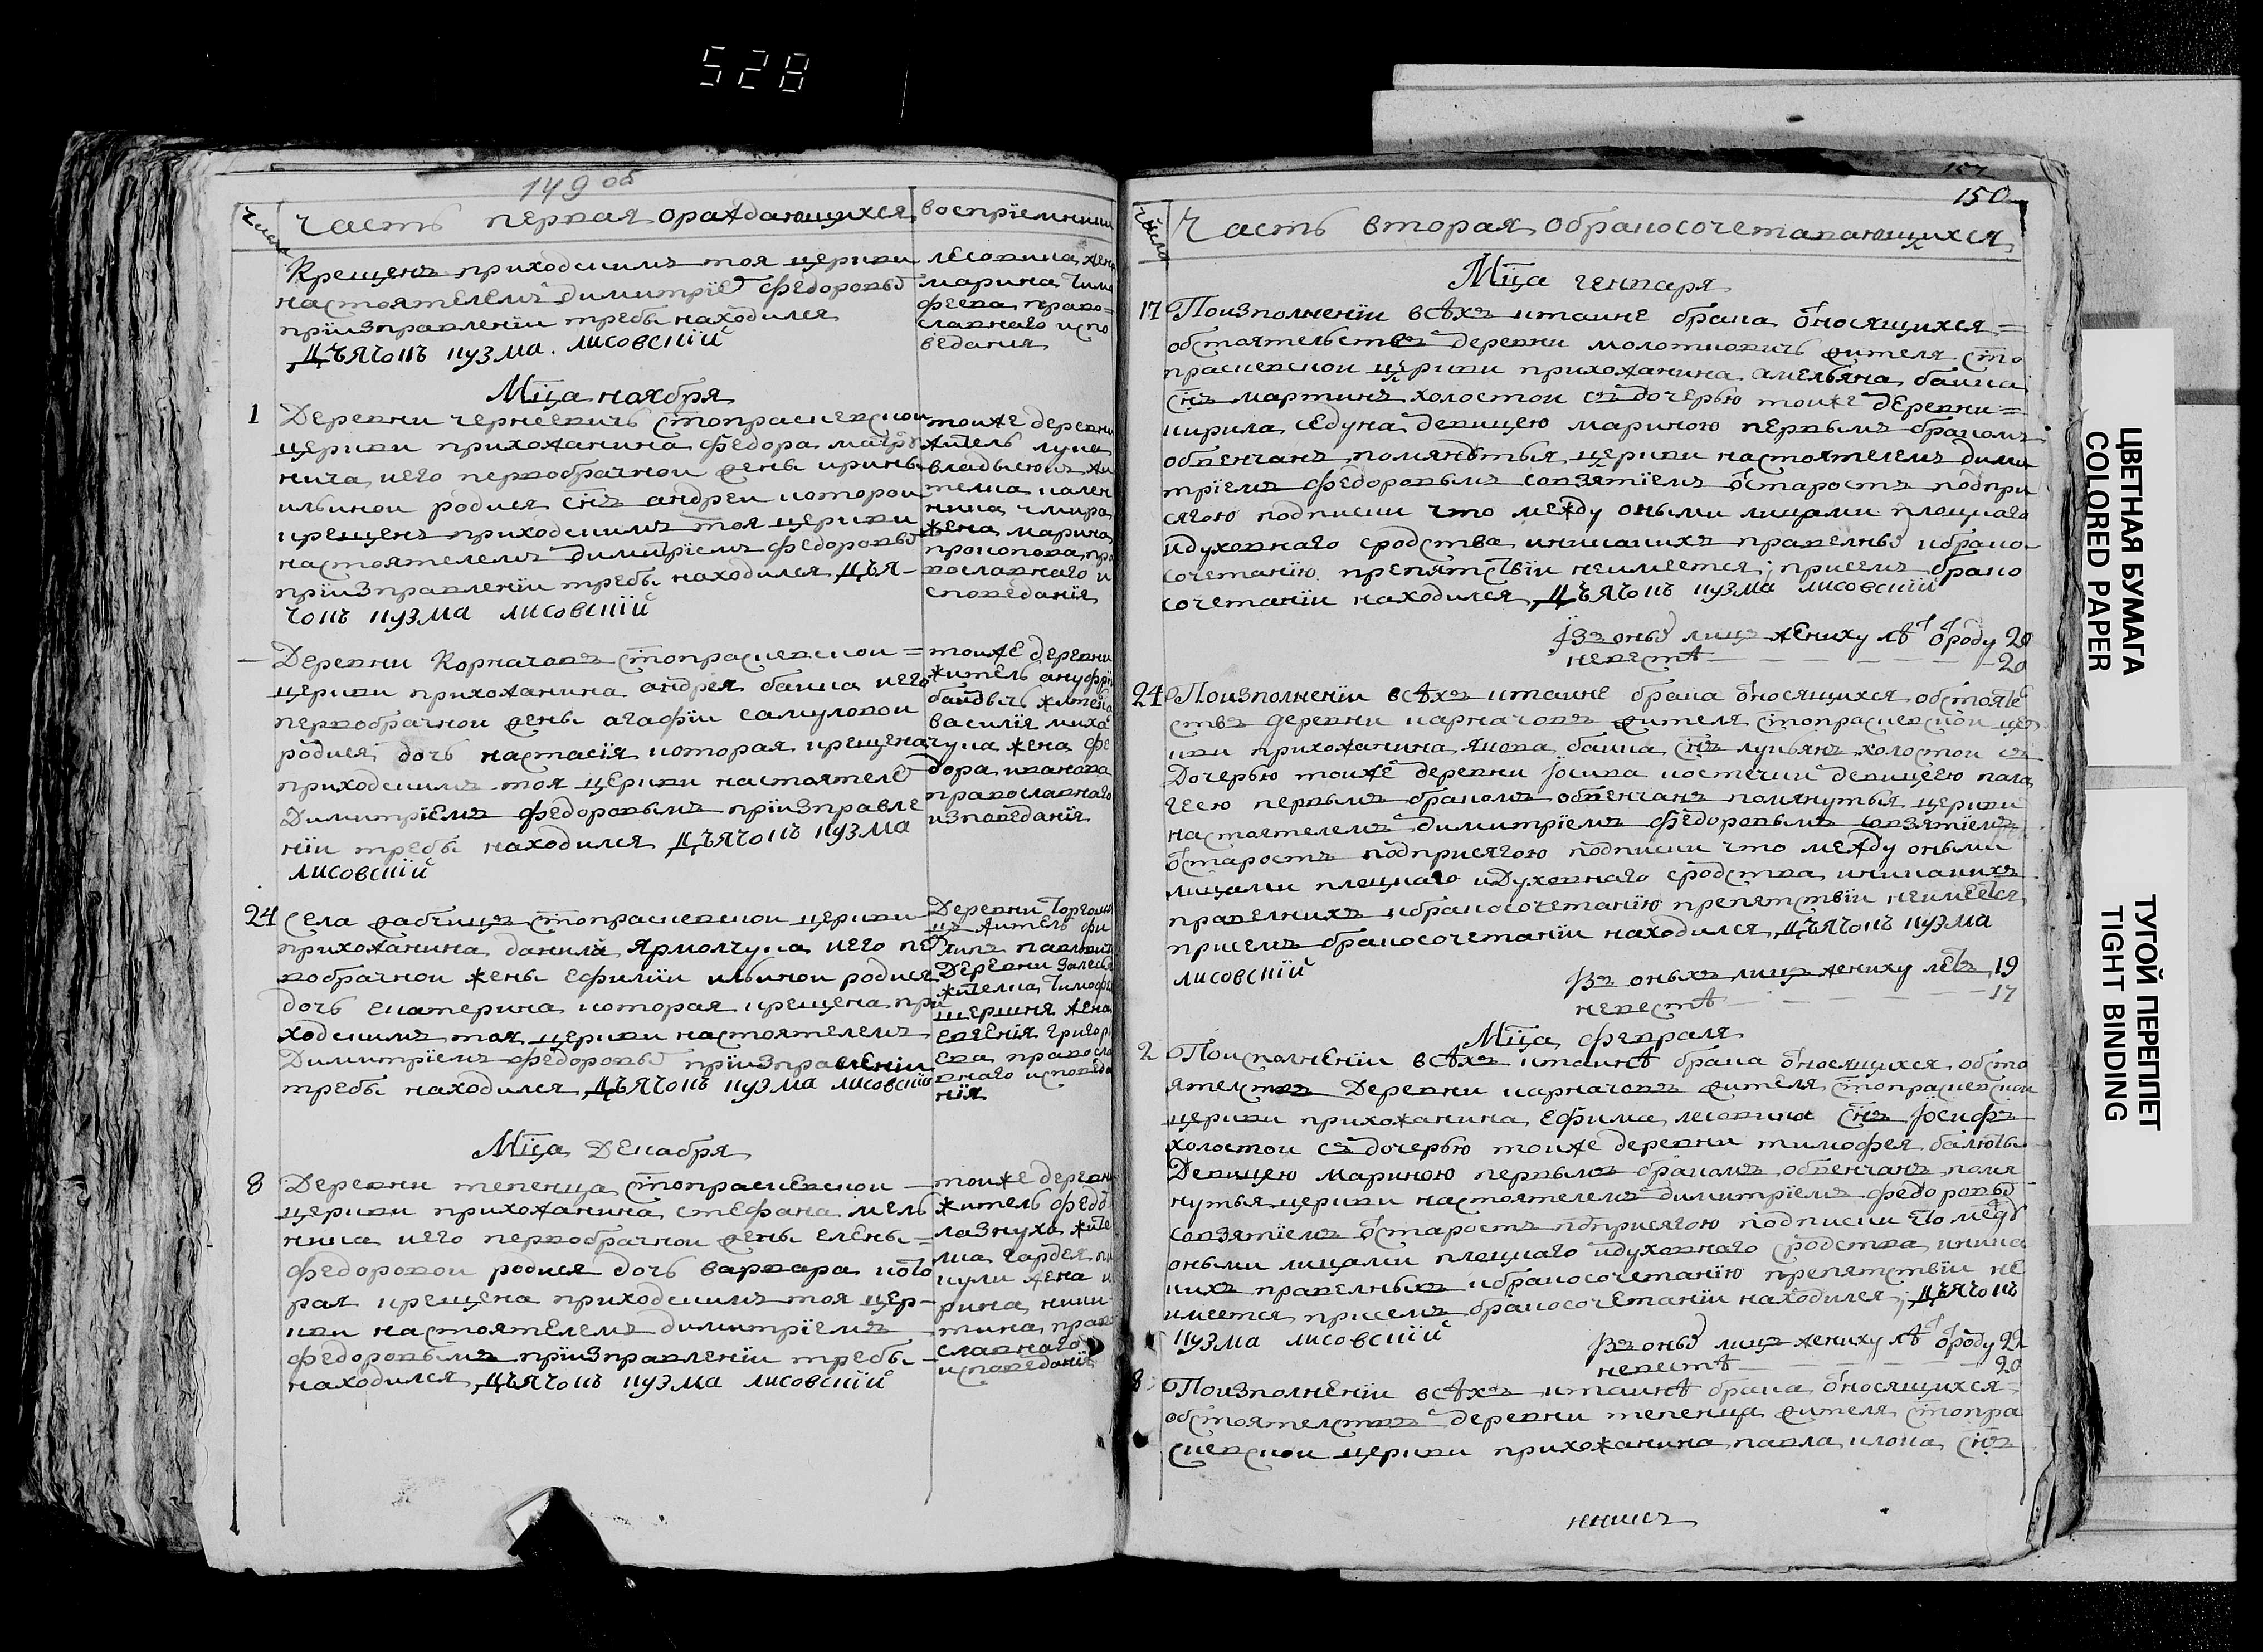 528
149 об
число
Часть первая ораждающихся
восприемники
Крещенъ приходскимъ тоя церкви
настоятелемъ Димитрiе федоровы
прiизправленiи требы находился
Дъячокъ кузма лисовскiй
лесовика жена
марина тимо
феева право-
славнаго испо
ведания
Мца ноября
1
Деревни чернеевичъ стопраскевской
церкви прихожанина федора
нича иего первобрачной жены ирины
илиной родися снъ андреи которой
крещенъ приходскимъ тоя церкви
настоятелемъ димитрiемъ федоровы
прiизправленiи требы находился дъя-
чокъ кузма лисовскiй
тойже деревни
житель лука
жена марина
прокопова пра
вославнаго и
споведанiя
Деревни Корначовъ стопраскевской =
церкви прихожанина андрея баика иего
первобрачной жены агафiи самуловой
родися дочь настасiя которая крещена
приходскимъ тоя церкви настоятеле
Димитрiемъ федоровымъ прiизправле
нiи требы находился Дъячокъ кузма
лисовскiй
тойже деревни
житель ануфрi
василiя миха
чука жена фе
дора иванова
православнаго
изповеданiя
24
Села рабчицъ стопраскевской церкви
прихожанина данила Ярмолчука иего пе
вобрачной жены ефимiи илиной родися
дочь екатерина которая крещена при
ходскимъ тоя церкви настоятелемъ
Димитрiемъ федоровы прiизправленiи
требы находился Дъячокъ кузма лисовскiй
житель фи
липъ павлович
Деревни залесья
жителка тимофе
жена
евгенiя григор
ева правосла
внаго исповеда
нiя
Мца Декабря
8
Деревни тепенца стопраскевской
церкви прихожанина стефана мель
ника иего первобрачной жены елены =
федоровой родися дочь варвара кото
рая крещена приходскимъ тоя цер-
кви настоятелемъ димитрiемъ
федоровымъ прiизправленiи требы -
находился Дъячокъ кузма лисовскiй
тойже деревни
житель федо
лазнуха жите
лка гардея пи
кули жена и
рина ники
тина право
славнаго
исповеданiя
150
число
Часть вторая обракосочетавающихся
Мца генваря
17
Поизполненiи всѣхъ ктаине брака относящихся =
обстоятельствъ деревни молоткович жителя сто
праскевской церкви прихожанина амельяна баика
снъ мартинъ холостой съ дочерью тойже деревни =
кирила седуна девицею мариною первымъ бракомъ
обвенчанъ помянутыя церкви настоятелемъ дими
трiемъ федоровымъ совзятiемъ отстаростъ подпри
сягою подписки что между оными лицами плоцкаго
идуховнаго сродства иникакихъ правелны кбрако
сочетанiю препятствiи неимеется присемъ брако
сочетанiи находился Дъячокъ кузма лисовскiй
Изъ оны лицъ жениху лѣтъ отроду 20
невестѣ — — — — 20
24
Поизполненiи всѣхъ ктаине брака относящихся обстояте
ствъ деревни карначовъ жителя стопраскевской цер
кви прихожанина якова баика снъ лукьянъ холостой съ
дочерью тойже деревни Iосипа костечки девицею пала
геею первымъ бракомъ обвенчанъ помянутыя церкви
настоятелемъ димитрiемъ федоровымъ совзятiемъ
отстаростъ подприсягою подписки что между оными
лицами плоцкаго идуховнаго сродства иникакихъ
правелнихъ кбракосочетанiю препятствiи неимеется
присемъ бракосочетанiи находился Дъячокъ кузма
лисовскiй
Въ оныхъ лицъ жениху летъ 19
невестѣ — — — — 17
Мца февраля
2
Поисполненiи всѣхъ ктаинѣ брака относящихся обсто
ятелствъ Деревни карначовъ жителя стопраскевской
церкви прихожанина ефима лесовика снъ Iосифъ
холостой съ дочерью тойже деревни тимофея балюты
Девицею мариною первымъ бракомъ обвенчанъ помя
нутыя церкви настоятелемъ димитрiемъ федоровы
совзятiемъ отстаростъ подприсягою подписки что межд
оными лицами плоцкаго идуховнаго сродства иника
кихъ правелныхъ кбракосочетанiю препятствiи не
имеется присемъ бракосочетанiи находился Дъячокъ
кузма лисовскiй
Въ оны лицъ жениху лѣтъ отроду 22
невестѣ — — — — 20
8
Поизполненiи всѣхъ ктаинѣ брака относящихся
обстоятелствъ деревни тепенца жителя стопра
скевской церкви прихожанина павла клока снъ
ЦВЕТНАЯ БУМАГА
COLORED PAPER
ТУГОЙ ПЕРЕПЛЕТ
TIGHT BINDING